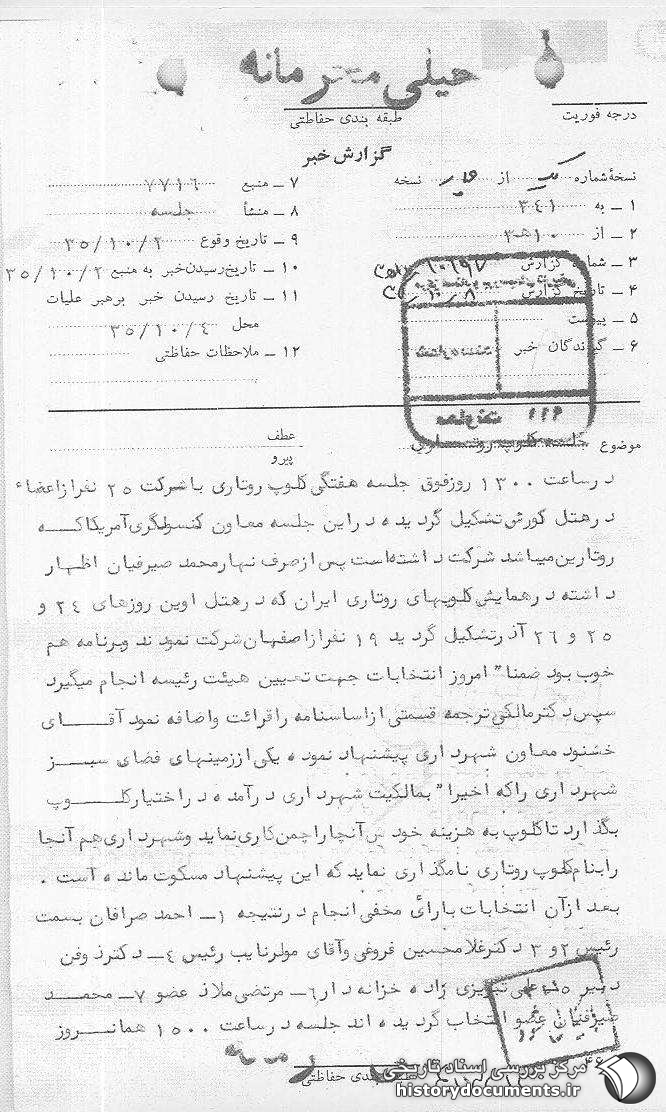 خیلی محرمانه
درجه فوریت
طبقه بندی حفاظتی
گزارش خبر
نسخهٔ شماره یک از نسخه
۱ ــ به ۳۴۱
۲ ــ از
۳ ــ شماره گزارش
۴ ــ تاریخ گزارش
۵ ــ پیوست
۶ ــ گیرندگان خبر
۷ ــ منبع ۷۷۱۶
۸ ــ منشأ جلسه
۹ ــ تاریخ وقوع ۳۵/۱۰/۲
۱۰ ــ تاریخ رسیدن خبر به منبع ۳۵/۱۰/۲
۱۱ ــ تاریخ رسیدن خبر برهبر عملیات
محل ۳۵/۱۰/۴
۱۲ ــ ملاحظات حفاظتی
موضوع جلسه کلوپ
عطف
پیرو
در ساعت ۱۳۰۰ روز فوق جلسه هفتگی کلوپ روتاری با شرکت ۲۵ نفر از اعضاء
در هتل کورش تشکیل گردیده در این جلسه معاون کنسولگری آمریکا که
روتارین میباشد شرکت داشته است پس از صرف نهار محمد صیرفیان اظهار
داشته در همایش کلوپهای روتاری ایران که در هتل اوین روزهای ۲۴ و
۲۵ و ۲۶ آذر تشکیل گردید ۱۹ نفر از اصفهان شرکت نمودند و برنامه هم
خوب بود ضمنا" امروز انتخابات جهت تعیین هیئت رئیسه انجام میگیرد
سپس دکتر مالکی ترجمه قسمتی از اساسنامه را قرائت و اضافه نمود آقای
خشنود معاون شهرداری پیشنهاد نموده یکی از زمینهای فضای سبز
شهرداری را که اخیرا" بمالکیت شهرداری درآمده در اختیار کلوپ
بگذارد تا کلوپ به هزینه خودش آنجا را چمن کاری نماید و شهرداری هم آنجا
را بنام کلوپ روتاری نامگذاری نماید که این پیشنهاد مسکوت مانده است .
بعد از آن انتخابات با رأی مخفی انجام در نتیجه ۱ــ احمد صرافان بسمت
رئیس ۲ و ۳ دکتر غلامحسین فروغی و آقای مولر نایب رئیس ۴ــ دکتر ذوفن
دبیر ۵ــ علی تبریزی زاده خزانه دار ۶ــ مرتضی ملاذ عضو ۷ــ محمد
صیرفیان عضو انتخاب گردیده اند جلسه در ساعت ۱۵۰۰ همانروز
طبقه بندی حفاظتی
مرکز بررسی اسناد تاریخی
historydocuments.ir